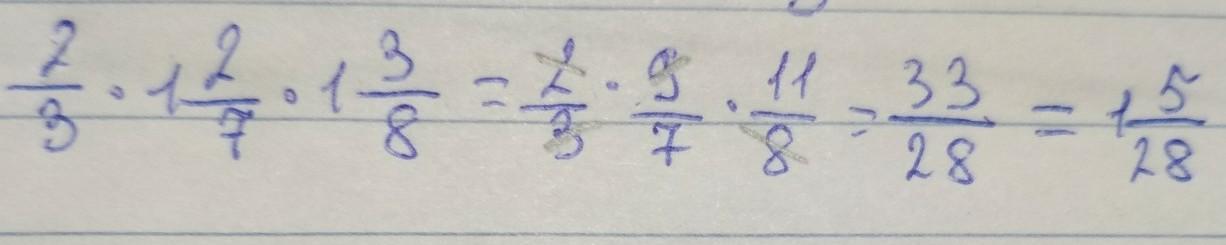 2/3 · 1 2/7 · 1 3/8 = 2/3 · 9/7 · 11/8 = 33/28 = 1 5/28